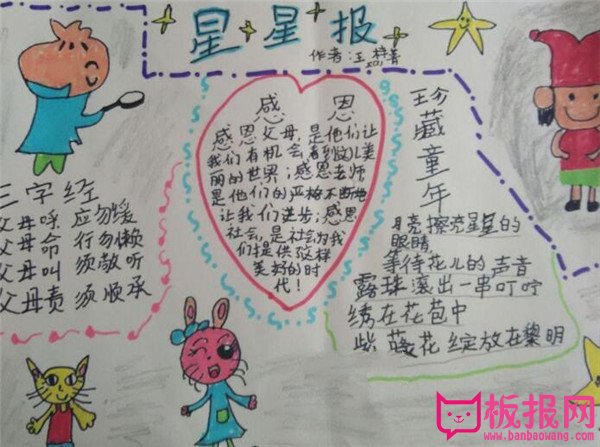 星星报
作者:王梓菁
感恩
感恩父母,是他们让
我们有机会看到如此美
丽的世界;感恩老师
是他们的严格不断地
让我们进步;感恩
社会,是社会为我
们提供这样
美好的时
代!
三字经
父母呼 应勿缓
父母命 行勿懒
父母叫 须敬听
父母责 须顺承
珍藏童年
月亮擦亮星星的
眼睛
等待花儿的声音
露珠滚出一串叮咛
绣在花苞中
紫藤花绽放在黎明
板报网
www.banbaowang.com